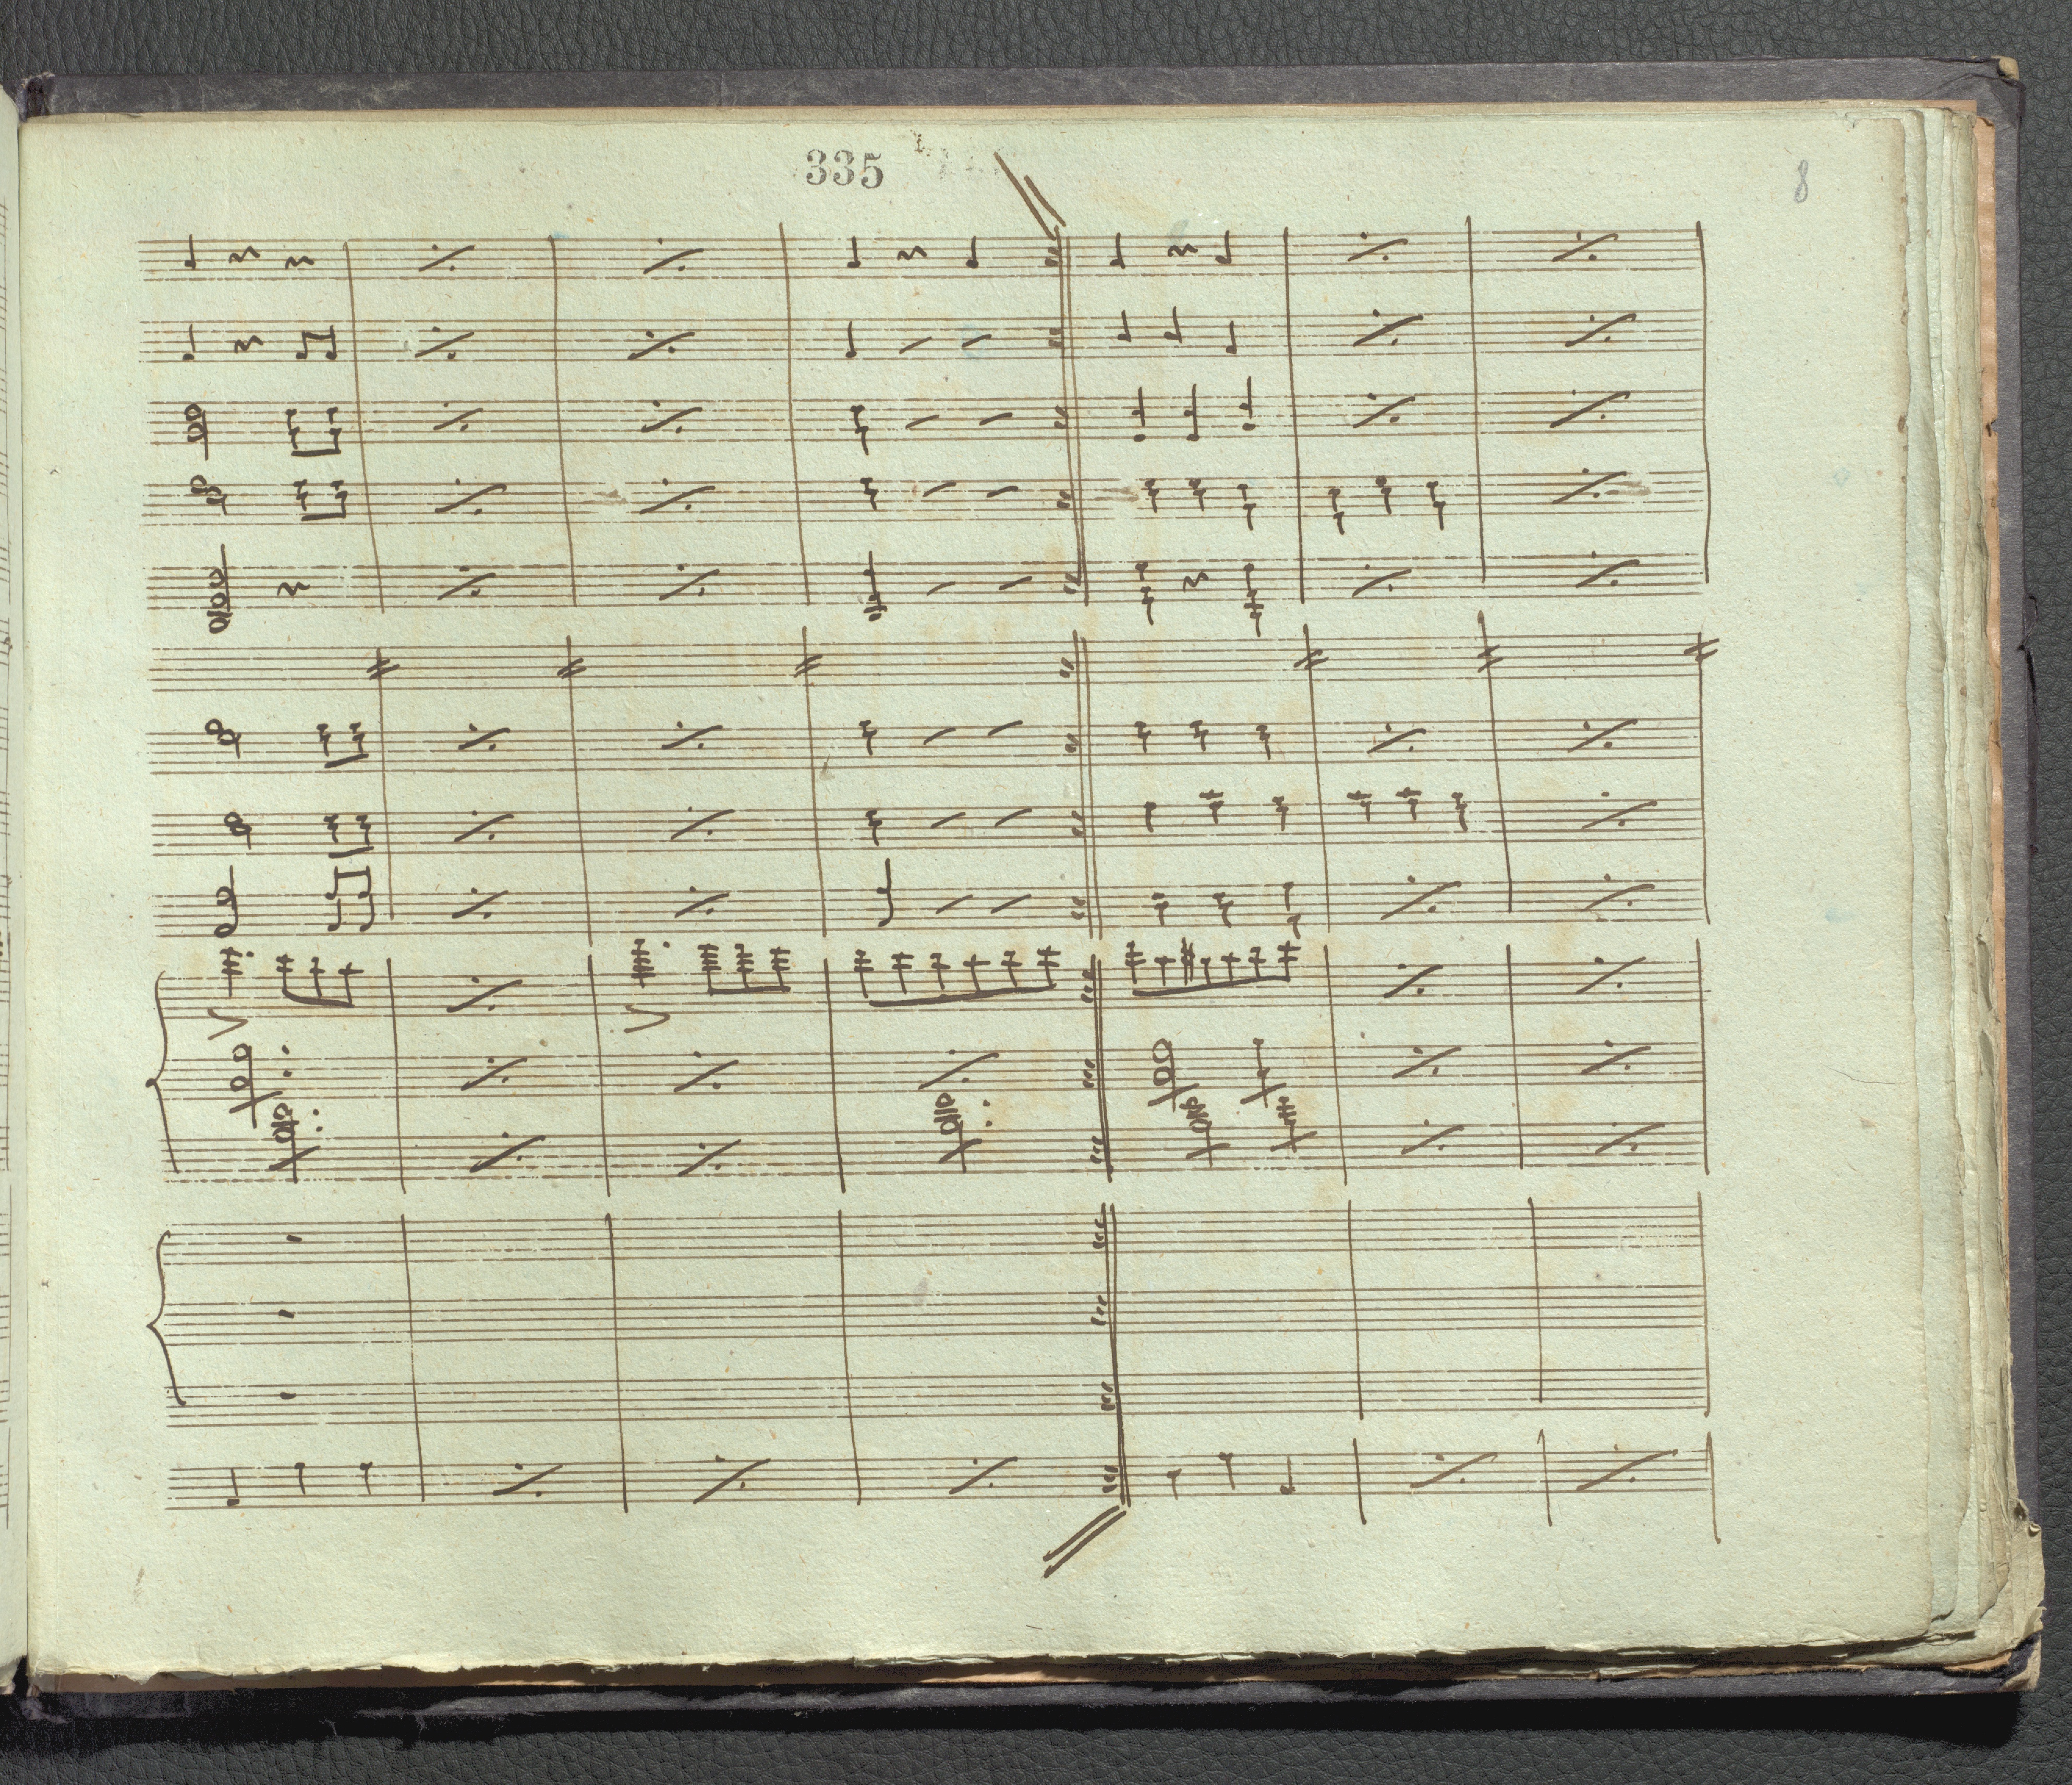 335
8